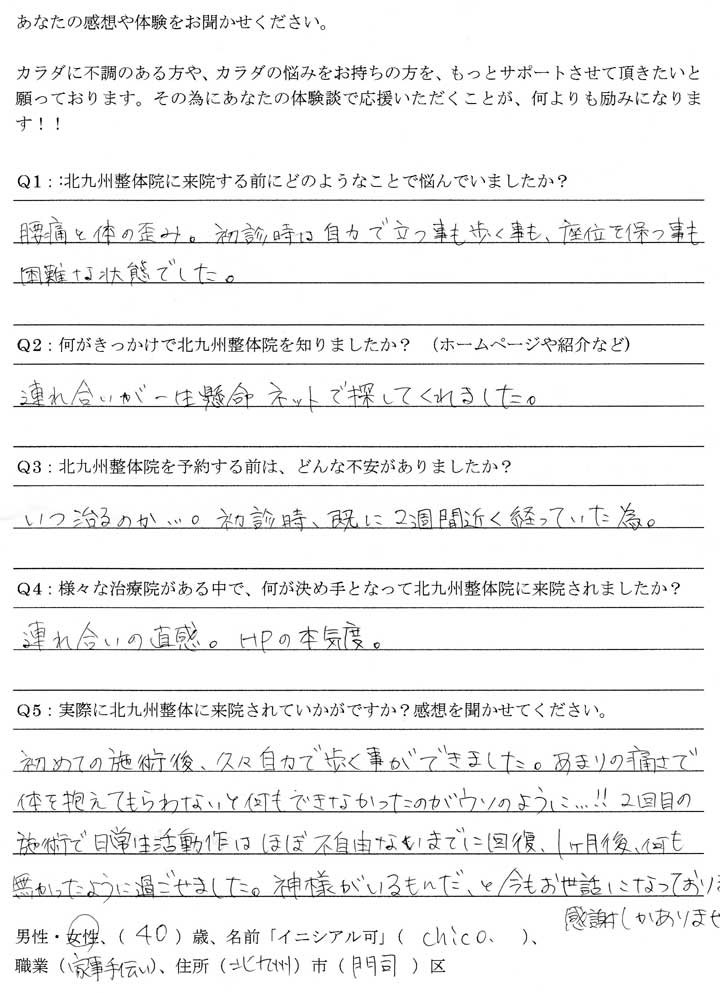 あなたの感想や体験をお聞かせください。
カラダに不調のある方や、カラダの悩みをお持ちの方を、もっとサポートさせて頂きたいと
願っております。その為にあなたの体験談で応援いただくことが、何よりも励みになりま
す！！
Q1：:北九州整体院に来院する前にどのようなことで悩んでいましたか？
腰痛と体の歪み。初診時は自力で立つ事も歩く事も、座位を保つ事も
困難な状態でした。
Q2：何がきっかけで北九州整体院を知りましたか？　（ホームページや紹介など）
連れ合いが一生懸命ネットで探してくれました。
Q3：北九州整体院を予約する前は、どんな不安がありましたか？
いつ治るのか…。初診時、既に2週間近く経っていた為。
Q4：様々な治療院がある中で、何が決め手となって北九州整体院に来院されましたか？
連れ合いの直感。HPの本気度。
Q5：実際に北九州整体に来院されていかがですか？感想を聞かせてください。
初めての施術後、久々自力で歩く事ができました。あまりの痛さで
体を抱えてもらわないと何もできなかったのがウソのように…!! 2回目の
施術で日常生活動作はほぼ不自由ないまでに回復、1ヶ月後、何も
無かったように過ごせました。神様がいるもんだ、と今もお世話になっておりま
感謝しかありませ
男性・女性、（ 40 ）歳、名前「イニシアル可」（ chico. ）、
職業（家事手伝い）、住所（北九州）市（門司）区